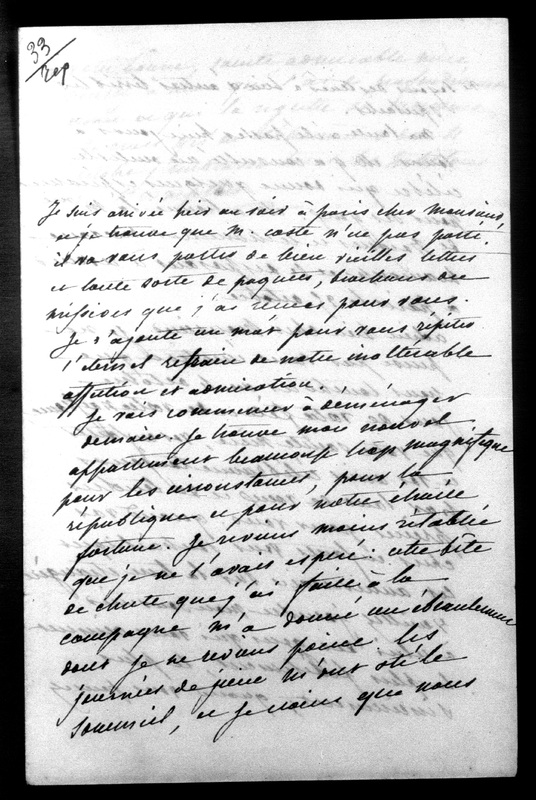 33
rep
Je suis arrivée hier au soir à paris cher monsieur,
et je trouve que M. coste n'est pas parti.
il va vous porter de bien vieilles lettres
et toute sorte de paquets, brochures ou
missives que j'ai reçues pour vous.
Je n'ajoute un mot pour vous répéter
l'éternel refrain de notre inaltérable
affection et admiration.
Je vais commencer à déménager
demain. Je trouve mon nouvel
appartement beaucoup trop magnifique
pour les circonstances, pour la
république et pour notre étroite
fortune. Je reviens moins rétablie
que je ne l'avais espéré. cette bête
de chute que j'ai faite à la
campagne m'a donné un ébranlement
dont je ne reviens point. les
journées de juin m'ont ôté le
sommeil, et je crains que nous